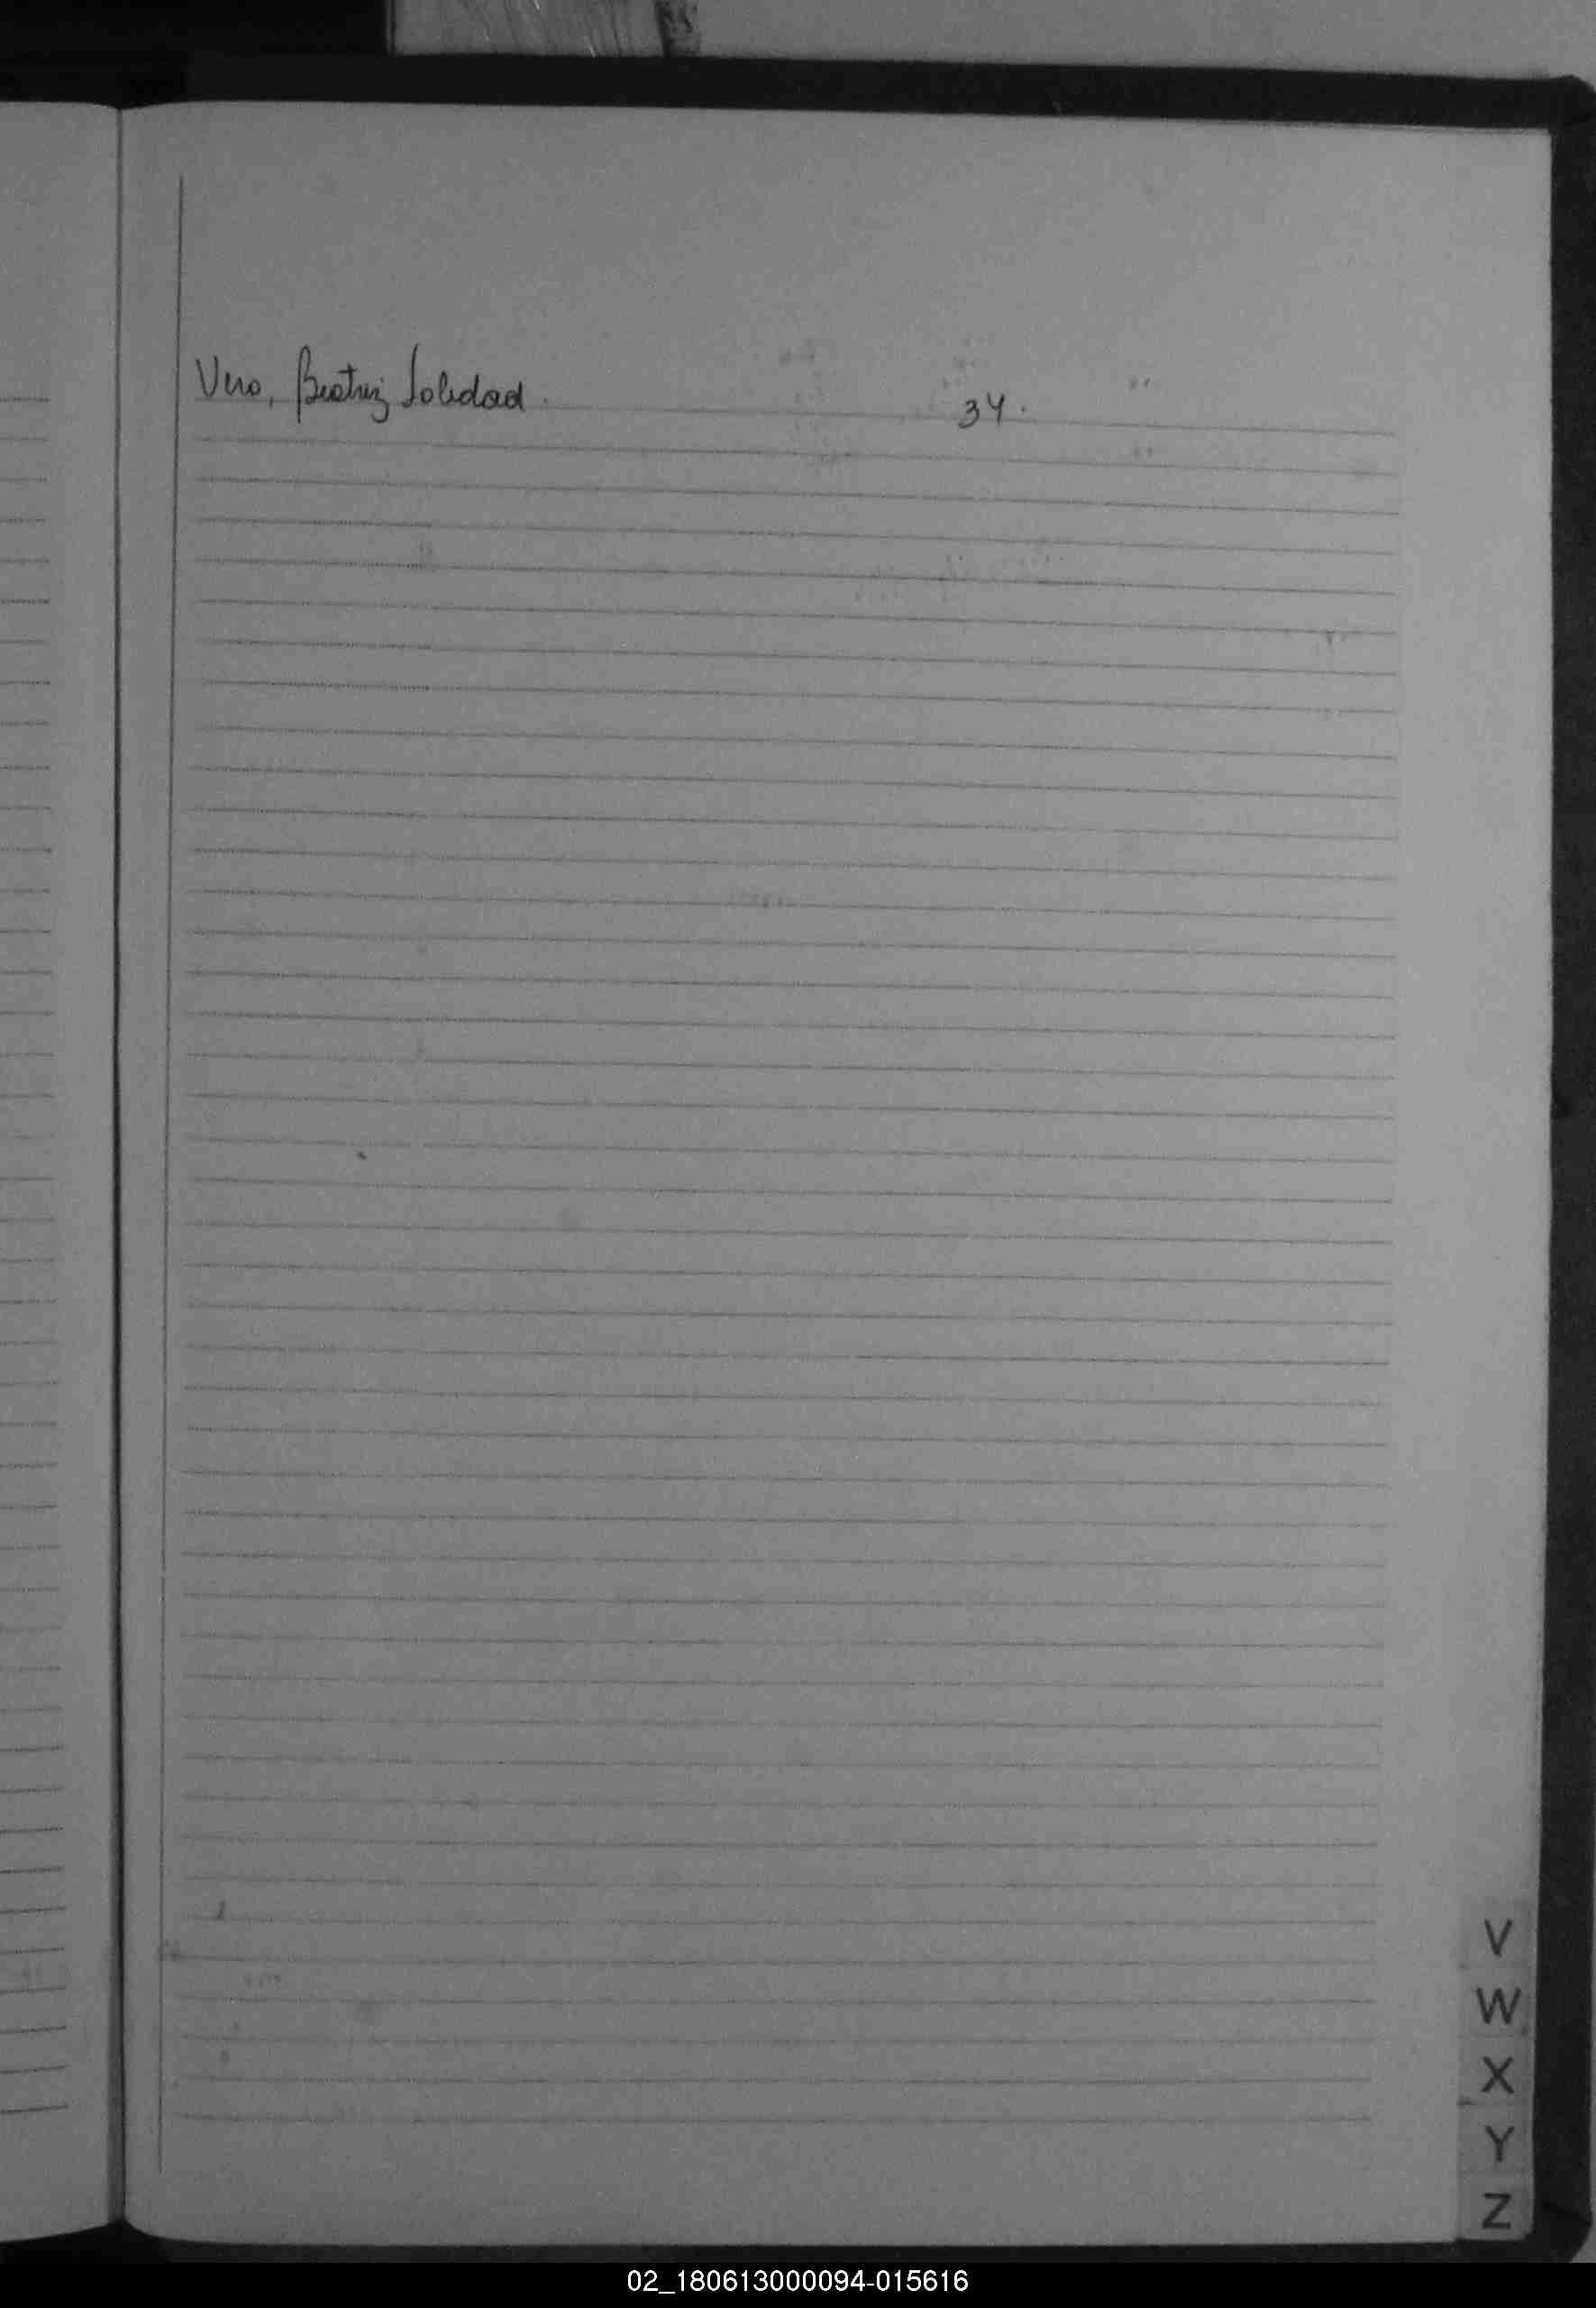 Vera, Beatriz Soledad. 34.
V
W
X
Y
Z
02_180613000094-015616